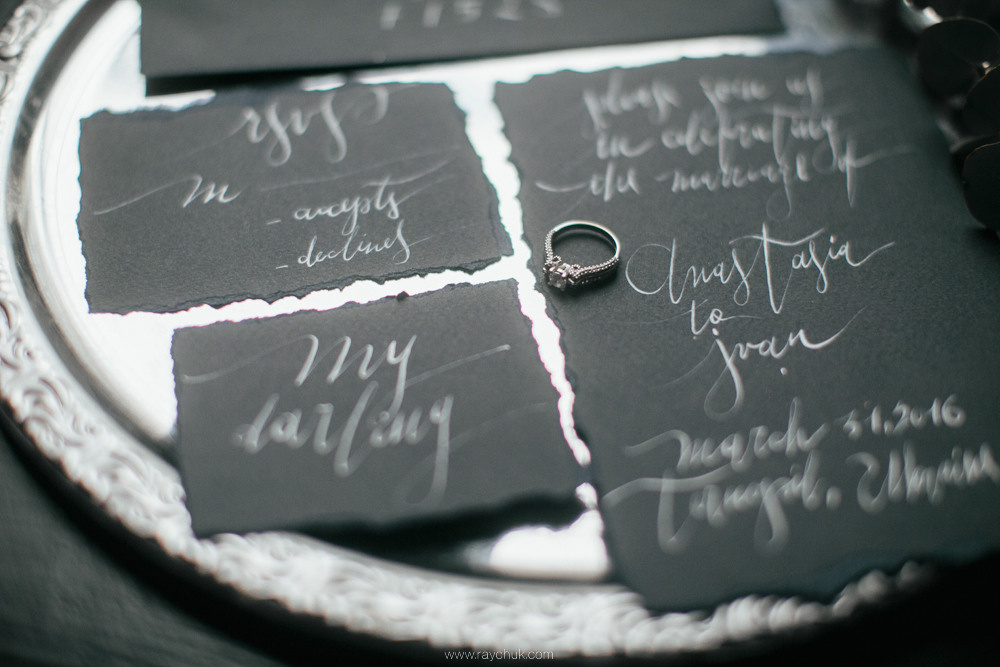 rsvp
m
- accepts
- declines
my
darling
please join us
in celebrating
the marriage of
Anastasia
to
jvan
march 31, 2016
Ternopil, Ukraine
www.raychuk.com